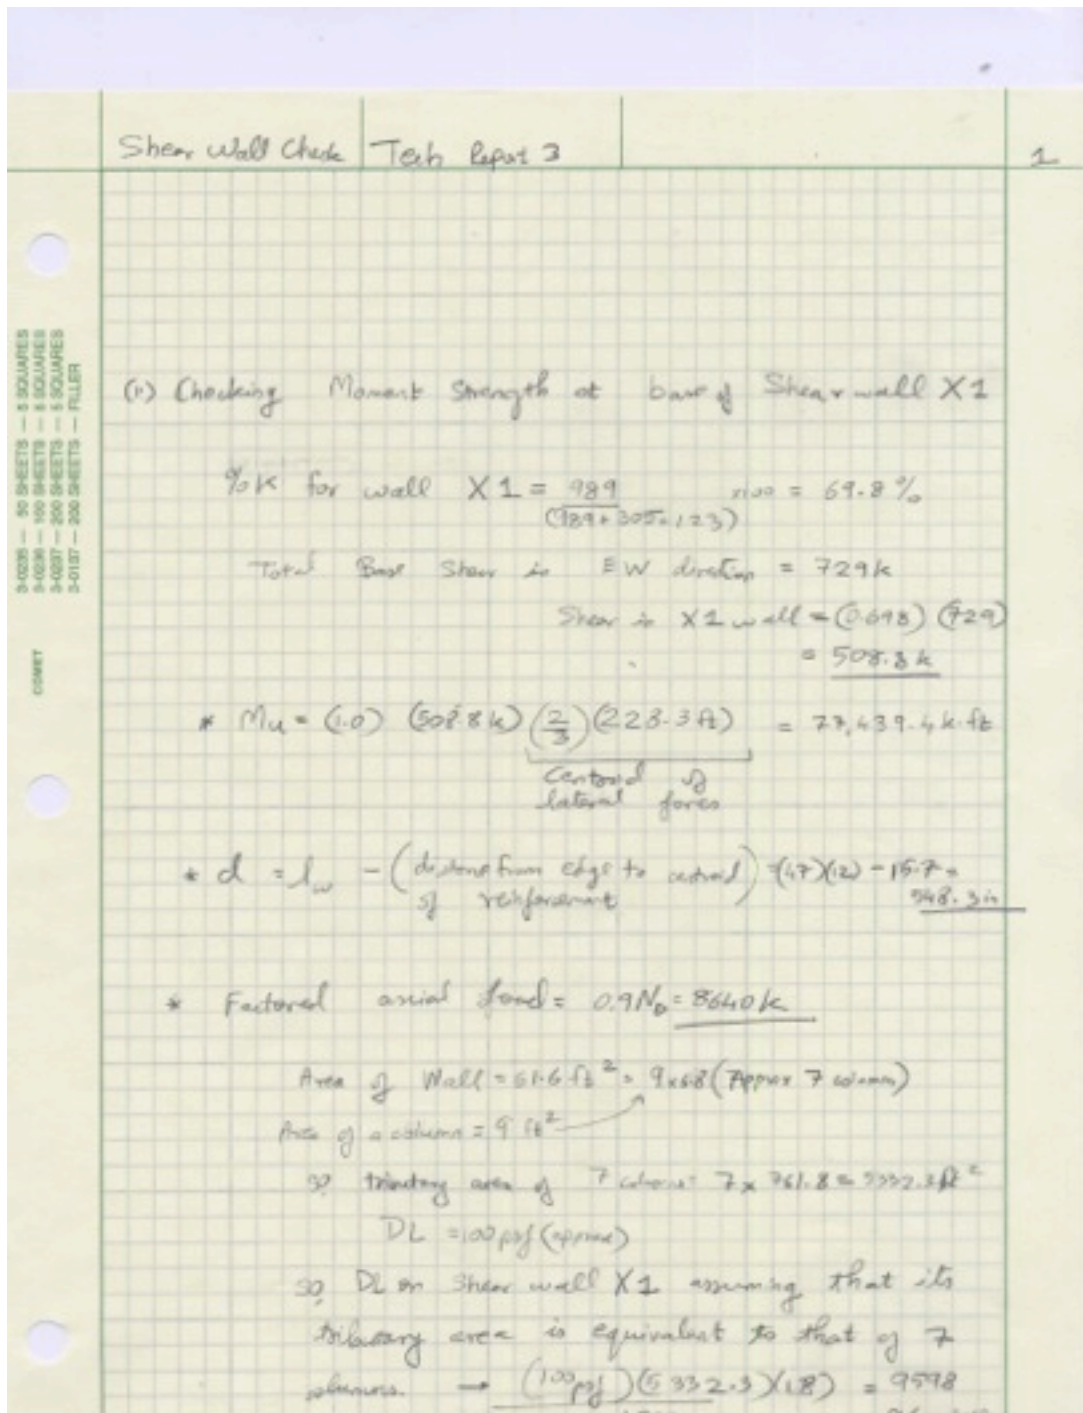 Shear Wall Check Tech Report 3 1
3-0235 — 50 SHEETS — 5 SQUARES
3-0236 — 100 SHEETS — 5 SQUARES
3-0237 — 200 SHEETS — 5 SQUARES
3-0137 — 200 SHEETS — FILLER
COMET
Checking Moment Strength at base of Shear wall X1
%K for wall X1 = 989 x100 = 69.8%
(989+305+123)
Total Base Shear in EW direction = 729k
Shear in X1 wall = (0.698) (729)
= 508.8k
* Mu = (1.0) (508.8k) (2/3) (228.3 ft) = 77,439.4 k.ft
Centroid of
lateral forces
* d = lw - (distance from edge to centroid) = (47)(12) - 15.7 =
of reinforcement 548.3 in
* Factored axial load = 0.9ND = 8640k
Area of Wall = 61.6 ft² = 9x6.8 (Approx 7 columns)
Area of a column = 9 ft²
so tributary area of 7 columns = 7 x 761.8 = 5332.3 ft²
DL = 100 psf (approx)
so DL on Shear wall X1 assuming that its
tributary area is equivalent to that of 7
columns. → (100 psf) (5332.3)(18) = 9598